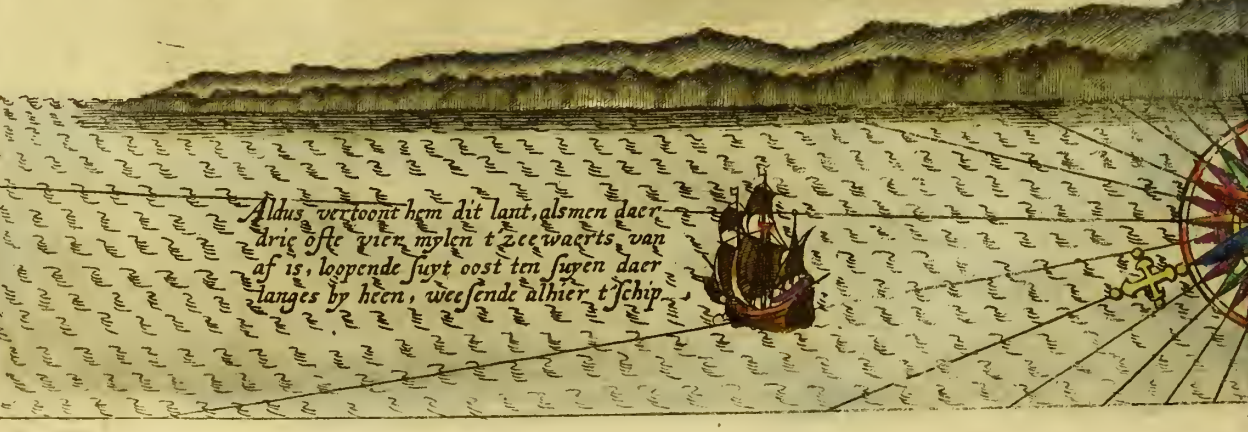 Aldus vertoont hem dit lant, alsmen daer
drie ofte vier mylen t'zeewaerts van
af is, loopende ſuyt ooſt ten ſuyen daer
langes by heen, weeſende alhier t'ſchip